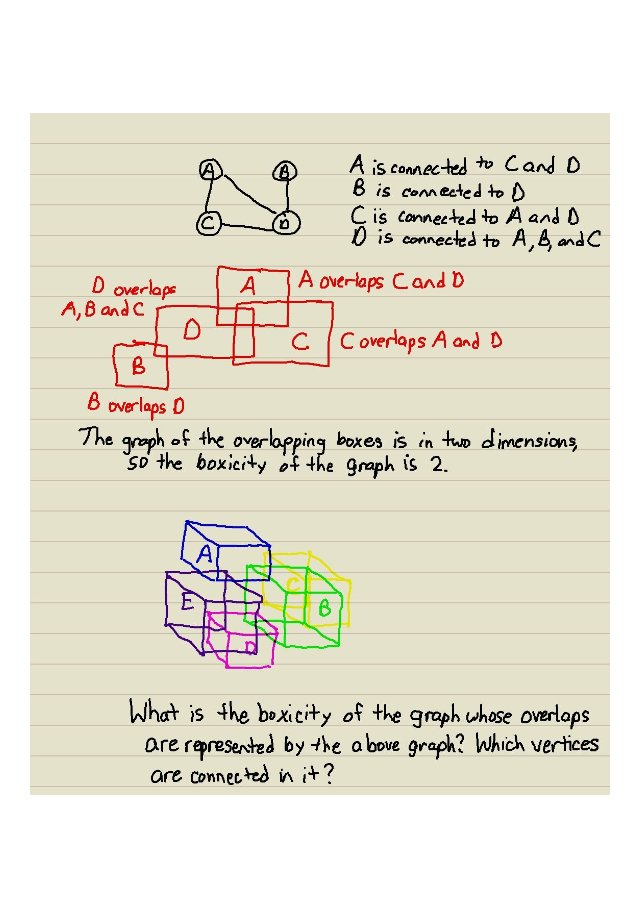 A B
C D
A is connected to C and D
B is connected to D
C is connected to A and D
D is connected to A, B, and C
D overlaps
A, B and C
A
A overlaps C and D
D
C
C overlaps A and D
B
B overlaps D
The graph of the overlapping boxes is in two dimensions,
so the boxicity of the graph is 2.
A
C
E
B
D
What is the boxicity of the graph whose overlaps
are represented by the above graph? Which vertices
are connected in it?